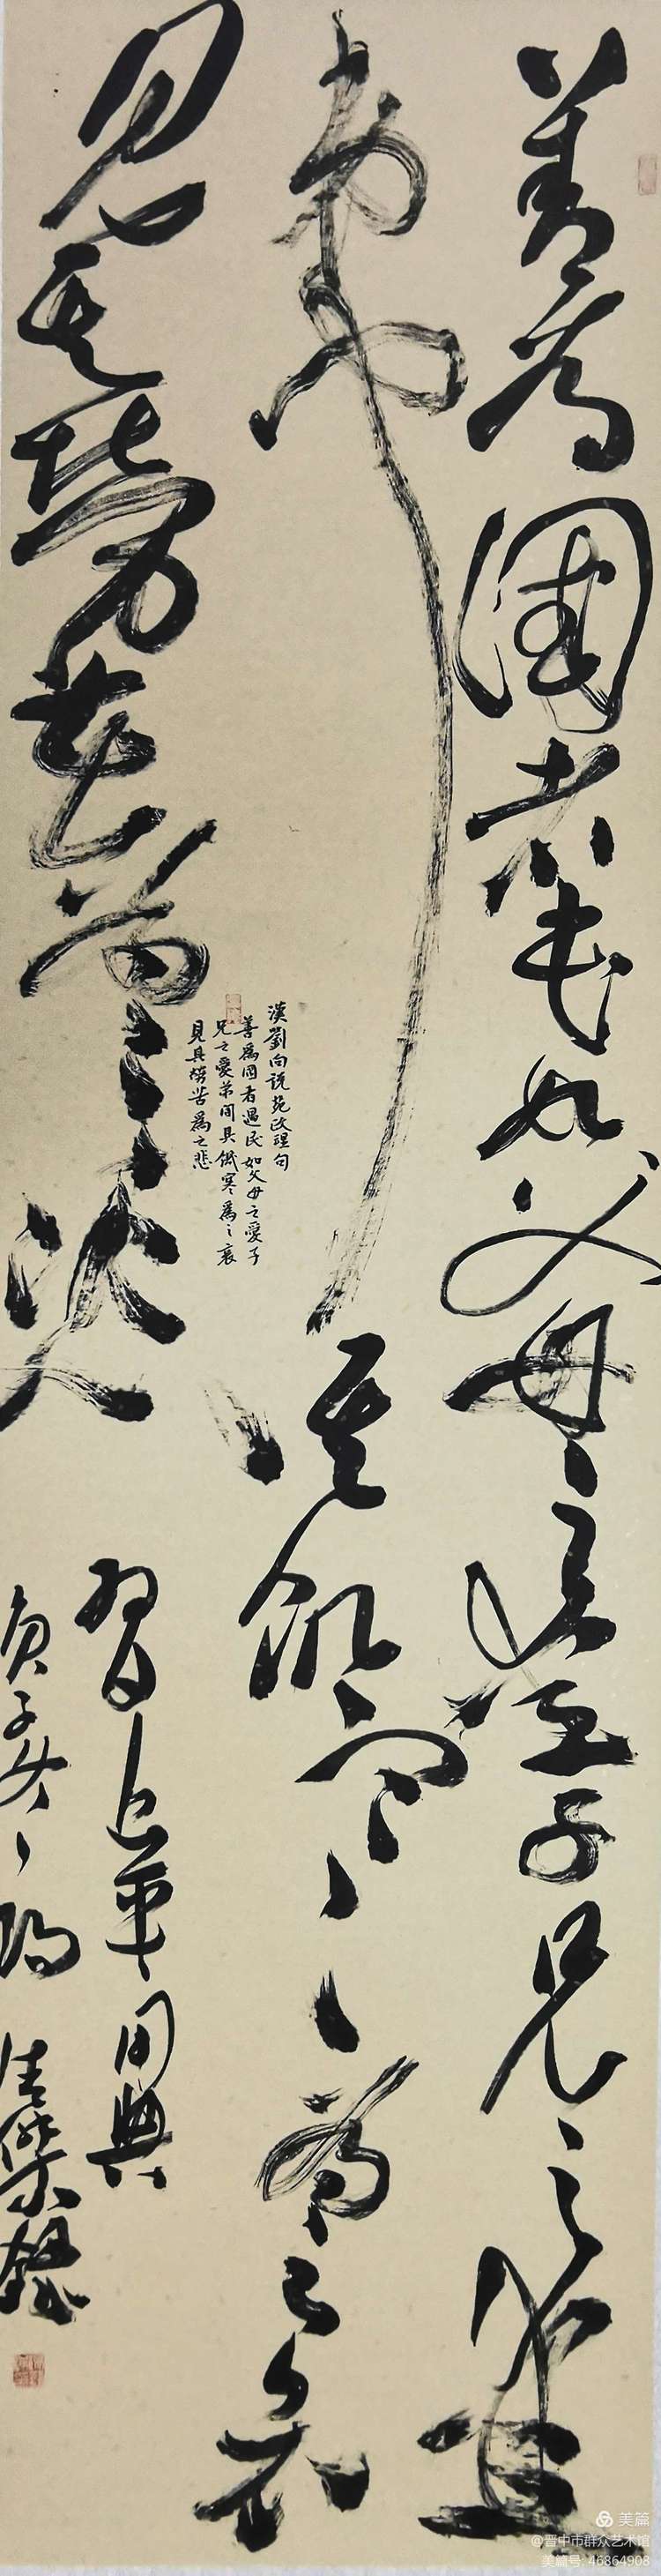 善為國者民如父母之愛子兄之愛
弟聞其飢寒為之哀
見其勞苦為之悲
漢劉向說苑政理句
善為國者遇民如父母之愛子
兄之愛弟聞其飢寒為之哀
見其勞苦為之悲
習近平用典
庚子
美篇
@晋中市群众艺术馆
美篇号: 46864908